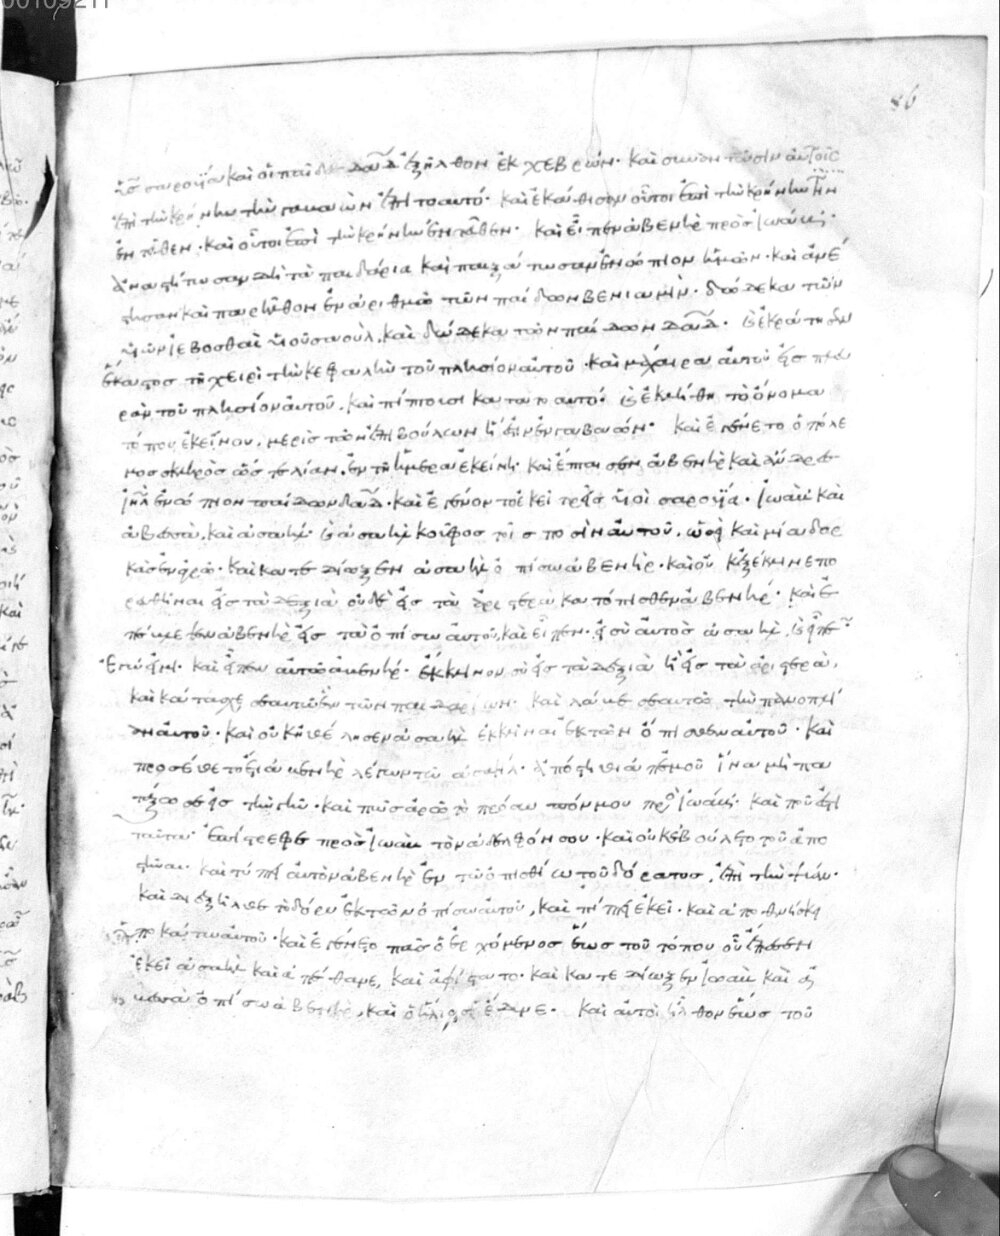 86
υἱὸσ σαρουΐα καὶ οἱ παῖδεσ δαυῒδ ἐξῆλθον ἐκ χεβρών· καὶ συναντῶσιν αὐτοῖσ
ἐπὶ τὴν κρήνην τὴν γαβαὼν ἐπὶ τοαυτό· καὶ ἐκάθισαν οὗτοι ἐπὶ τὴν κρήνην
ἐντεῦθεν· καὶ οὗτοι ἐπὶ τὴν κρήνην ἐντεῦθεν· καὶ εἶπεν ἀβενὴρ πρὸσ ἰωάβ·
ἀναστήτωσαν δὴ τὰ παιδάρια καὶ παιξάτωσαν ἐνώπιον ἡμῶν· καὶ ἀνέ
στησαν καὶ παρῆλθον ἐν ἀριθμῶ τῶν παίδων βενιαμὶν· δώδεκα τῶν
ἰεβοσθαὶ υἱοῦ σαούλ, καὶ δώδεκα τῶν παίδων δαυῒδ· καὶ ἐκράτησαν
ἕκαστοσ τῆ χειρὶ τὴν κεφαλὴν τοῦ πλησίον αὐτοῦ· καὶ μάχαιρα αὐτοῦ εἰσ πλευ
ρὰν τοῦ πλησίον αὐτοῦ, καὶ πίπτουσι κατατοαυτό· καὶ ἐκλήθη τὸ ὄνομα
τόπου ἐκείνου, μερὶσ τῶν ἐπιβούλων ἡ ἐν γαβαών· καὶ ἐγένετο ὁ πόλε
μοσ σκληρὸσ ὥσ τε λίαν, ἐν τῆ ἡμέρα ἐκείνη· καὶ ἔπταισεν ἀβενὴρ καὶ ἄνδρεσ
ἰηλ ἐνώπιον παίδων δαυῒδ· καὶ ἐγένοντο ἐκεῖ τρεῖσ υἱοὶ σαρουΐα· ἰωὰβ καὶ
ἀβεσσὰ, καὶ ἀσαὴλ· καὶ ἀσαὴλ κοῦφοσ τοῖσ ποσὶν αὐτοῦ, ὡσεὶ καὶ μία δορ
κὰσ ἐν ἀγρῶ· καὶ κατεδίωξεν ἀσαὴλ ὀπίσω ἀβενὴρ· καὶ οὐκ ἐξέκλινε πο
ρευθῆναι εἰσ τὰ δεξιὰ οὐδὲ εἰσ τὰ ἀριστερὰ κατόπισθεν ἀβενὴρ· καὶ ἐ
πέβλεψεν ἀβενὴρ εἰσ τὰ ὀπίσω αὐτοῦ, καὶ εἶπεν· εἰ σὺ αὐτὸσ ἀσαὴλ, καὶ εἶπεν
ἐγώ εἰμι· καὶ εἶπεν αὐτῶ ἀβενὴρ· ἔκκλινον σὺ εἰσ τὰ δεξιὰ ἢ εἰσ τὰ ἀριστερὰ,
καὶ κάτασχε σεαυτῶ ἓν τῶν παιδαρίων· καὶ λάβε σεαυτῶ τὴν πανοπλί
αν αὐτοῦ· καὶ οὐκ ἠθέλησεν ἀσαὴλ ἐκκλῖναι ἐκ τῶν ὄπισθεν αὐτοῦ· καὶ
προσέθετο ἔτι ἀβενὴρ λέγων τῶ ἀσαὴλ· ἀπόστηθι ἀπ' ἐμοῦ ἵνα μὴ πα
τάξω σε εἰσ τὴν γῆν· καὶ πῶσ ἀρῶ τὸ πρόσωπόν μου πρὸσ ἰωάβ· καὶ ποῦ ἐστι
ταῦτα· ἐπίστρεφε πρὸσ ἰωὰβ τὸν ἀδελφόν σου· καὶ οὐκ ἐβούλετο τοῦ ἀπο
στῆναι· καὶ τύπτει αὐτὸν ἀβενὴρ ἐν τῶ ὀπισθίω τοῦ δόρατοσ, ἐπὶ τὴν ψόαν·
καὶ διεξῆλθε τὸ δόρυ ἐκ τῶν ὀπίσω αὐτοῦ, καὶ πίπτει ἐκεῖ· καὶ ἀποθνήσκει
ὑποκάτω αὐτοῦ· καὶ ἐγένετο πᾶσ ὁ ἐρχόμενοσ ἕωσ τοῦ τόπου οὗ ἔπεσεν
ἐκεῖ ἀσαὴλ καὶ ἀπέθανε, καὶ ἀφίστατο· καὶ κατεδίωξεν ἰωὰβ καὶ ἀ
βεσσὰ ὀπίσω ἀβενὴρ, καὶ ὁ ἥλιοσ ἔδυνε· καὶ αὐτοὶ ἦλθον ἕωσ τοῦ